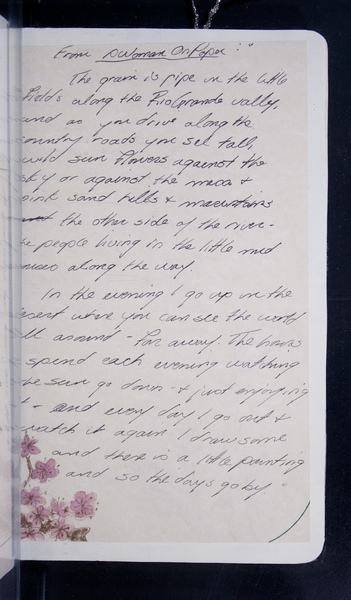 From "A Woman On Paper:"
The grain is ripe in the little
fields along the Rio Grande valley,
and as you drive along the
country roads you see tall,
wild sun flowers against the
sky or against the mesa &
pink sand hills & mountains
the other side of the river -
people living in the little mud
along the way.
In the evening I go up in the
desert where you can see the world
all around - far away. The hours
I spend each evening watching
the sun go down - & just enjoying
it - and every day I go out &
watch it again. I draw some
and there is a little painting
and so the days go by"